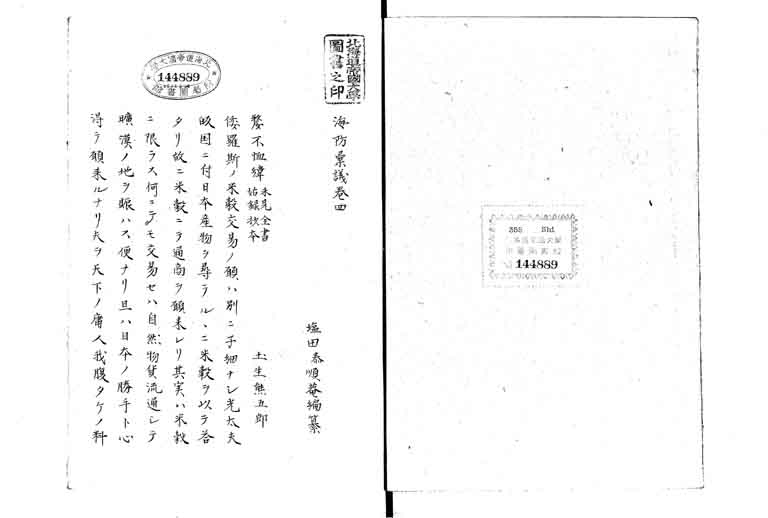 355 Shi
144889
北海道帝國大學
圖書之印
144889
海防彙議巻四
塩田泰順菴編纂
嫠不恤緯 未見全書
姑録抜本
土生熊五郎
倭羅斯ノ米穀交易ノ願ハ別ニ子細ナシ光太夫
皈国ニ付日本産物ヲ尋ラルヽニ米穀ヲ以テ答
タリ故ニ米穀ニテ通商ヲ願来レリ其実ハ米穀
ニ限ラス何ニテモ交易セハ自然物貨流通シテ
曠漠ノ地ヲ賑ハス便ナリ且ハ日本ノ勝手ト心
得テ願来ルナリ夫ヲ天下ノ庸人我腹タケノ料